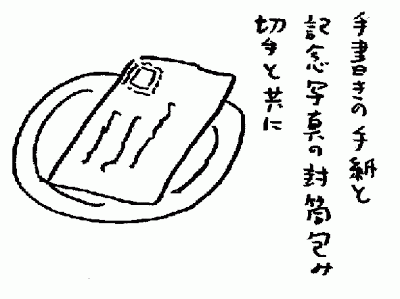 手書きの手紙と
記念写真の封筒包み
切手と共に